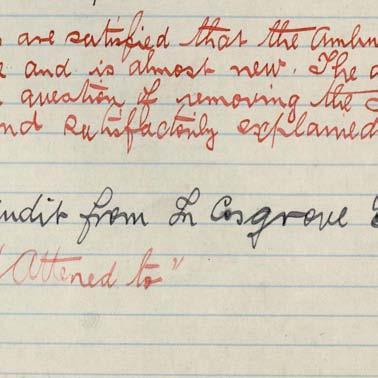 are satisfied that the Ambu
e and is almost new. The a
question of removing the S
nd satisfactorily explained
udit from Ln Cosgrove
"Attened to"